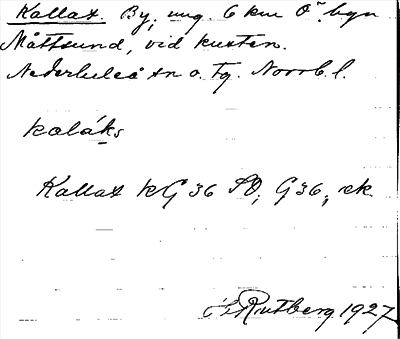 Kallax. By, ung. 6 km Ö. byn
Måttsund, vid kusten.
Nederluleå sn o. tg. Norrb. l.
kaláks
Kallax KG 36 SO, G36, ek.
Rutberg 1927